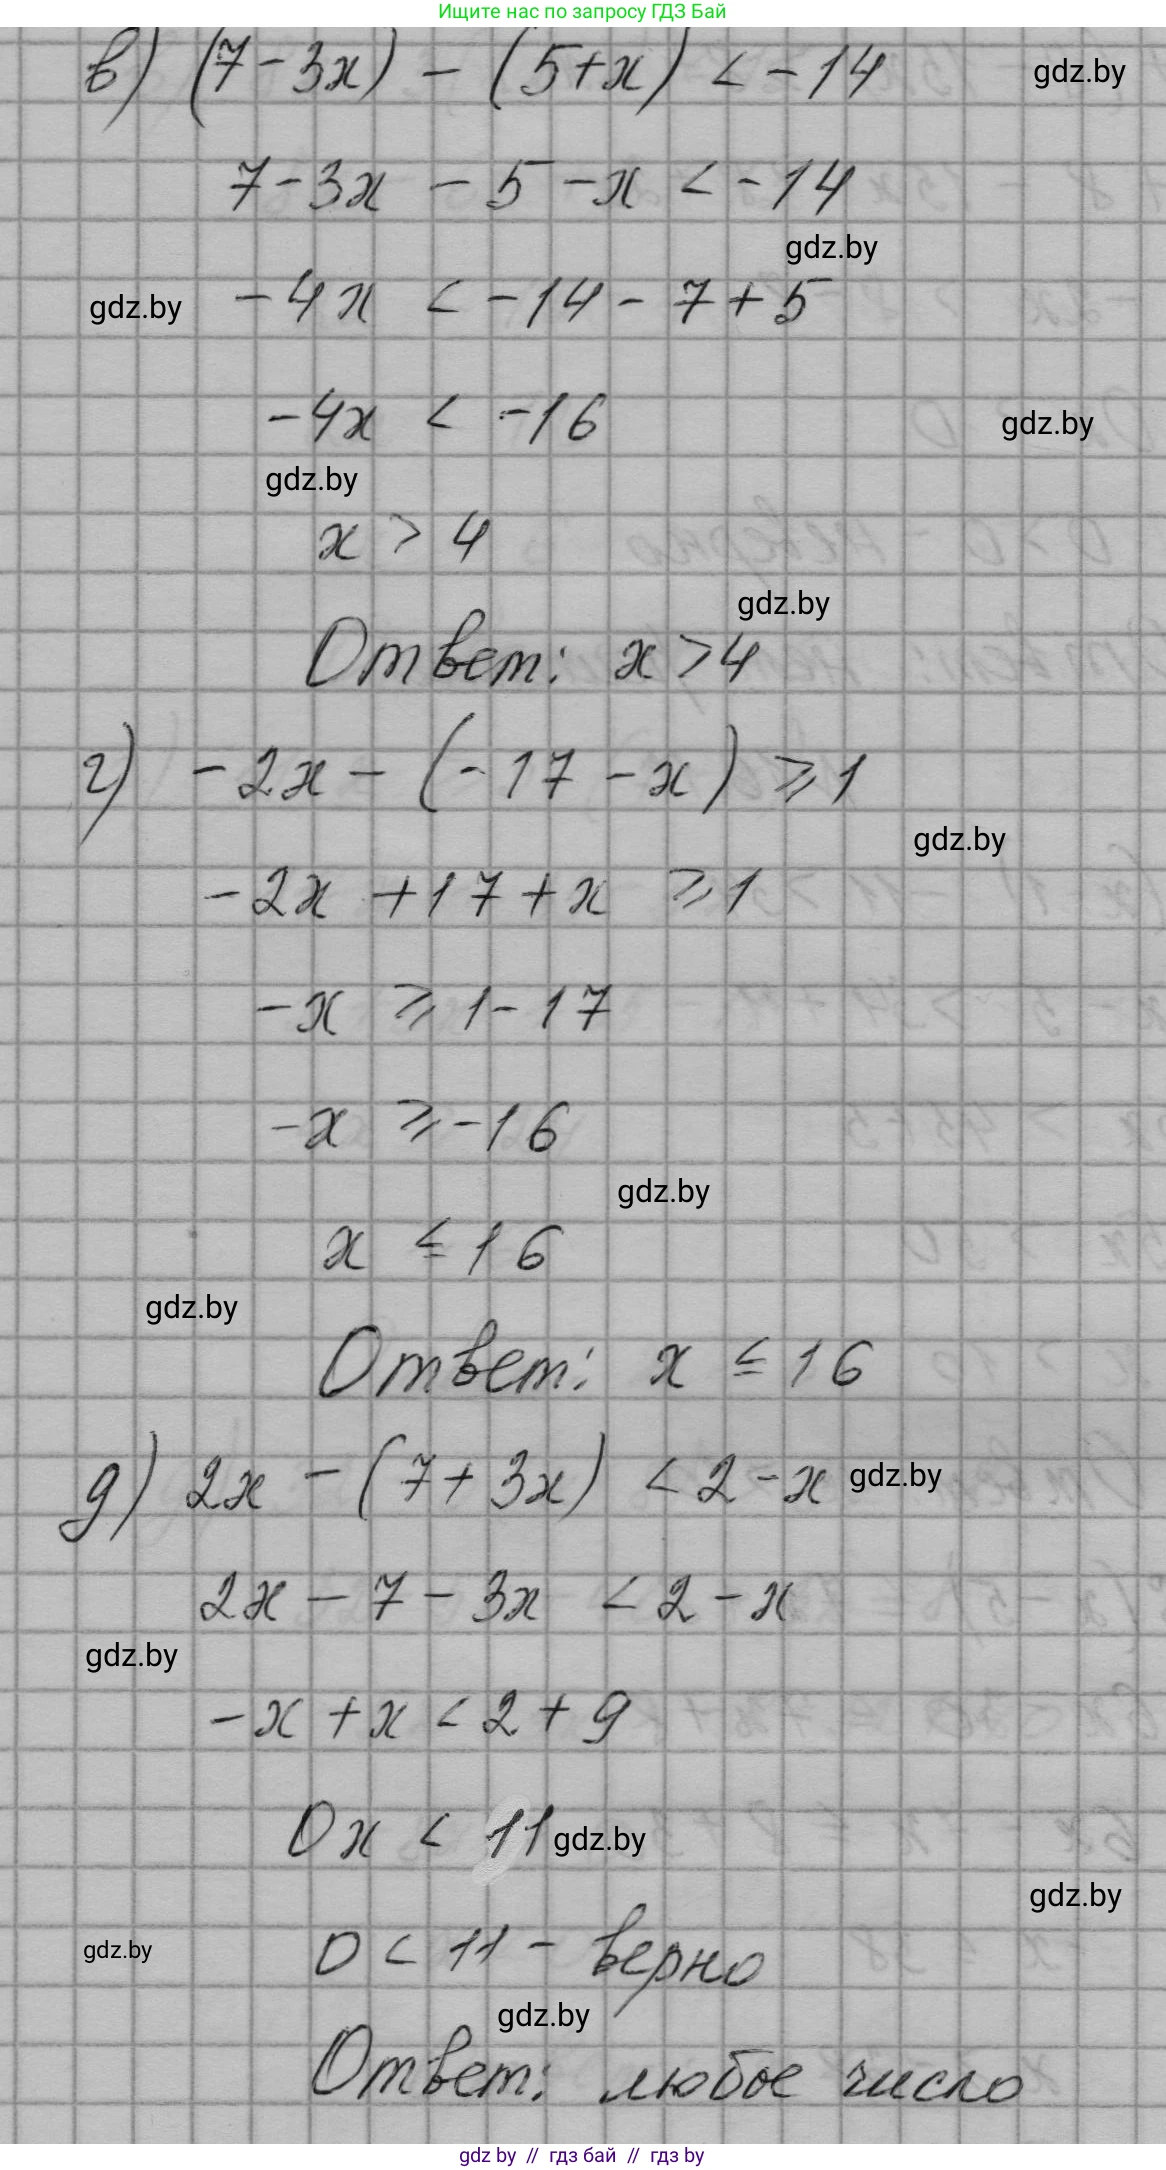 Ищите нас по запросу ГДЗ Бай
в) (7-3x) - (5+x) < -14
gdz.by
7-3x - 5 -x < -14
gdz.by
gdz.by
-4x < -14 - 7 + 5
-4x < -16
gdz.by
gdz.by
x > 4
gdz.by
Ответ: x > 4
г) -2x - (-17 - x) ⩾ 1
gdz.by
-2x + 17 + x ⩾ 1
-x ⩾ 1 - 17
-x ⩾ -16
gdz.by
x ≤ 16
gdz.by
Ответ: x ≤ 16
д) 2x - (7 + 3x) < 2 - x
gdz.by
2x - 7 - 3x < 2 - x
gdz.by
-x + x < 2 + 9
0x < 11
gdz.by
gdz.by
0 < 11 - верно
gdz.by
gdz.by
Ответ: любое число
gdz by // гдз бай // гдз by